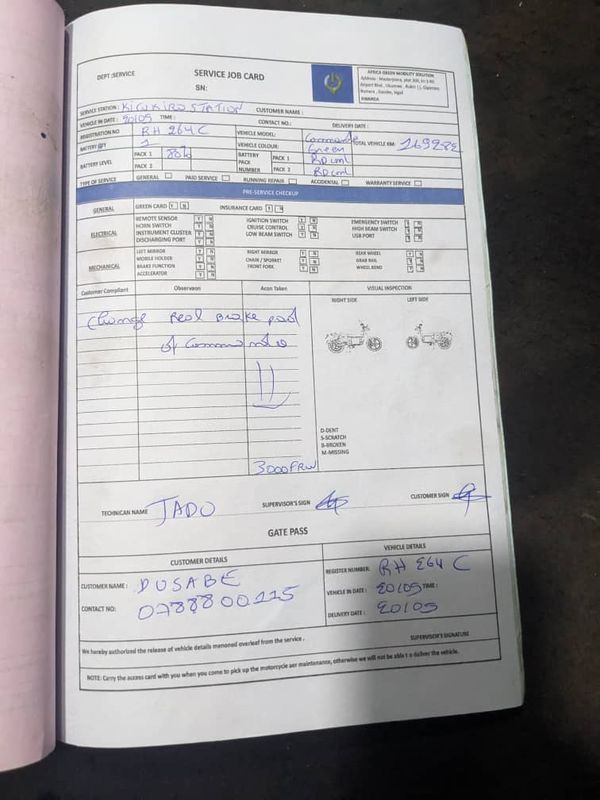 DEPT :SERVICE
SERVICE JOB CARD
SN:
AFRICA GREEN MOBILITY SOLUTION
RWANDA
SERVICE STATION : KICUKIRO STATION CUSTOMER NAME :
VEHICLE IN DATE : 20/05 TIME : CONTACT NO.: DELIVERY DATE :
REGISTRATION NO RH 264 C VEHICLE MODEL: TOTAL VEHICLE KM:
BATTERY QTY 1 VEHICLE COLOUR: Green
BATTERY LEVEL PACK 1 88% BATTERY PACK NUMBER PACK 1
PACK 2 PACK 2
TYPE OF SERVICE GENERAL PAID SERVICE RUNNING REPAIR ACCIDENTAL WARRANTY SERVICE
PRE-SERVICE CHECKUP
GENERAL GREEN CARD Y N INSURANCE CARD Y N
ELECTRICAL REMOTE SENSOR Y N IGNITION SWITCH Y N EMERGENCY SWITCH Y N
HORN SWITCH Y N CRUISE CONTROL Y N HIGH BEAM SWITCH Y N
INSTRUMENT CLUSTER Y N LOW BEAM SWITCH Y N USB PORT Y N
DISCHARGING PORT Y N
MECHANICAL LEFT MIRROR Y N RIGHT MIRROR Y N REAR WHEEL Y N
MOBILE HOLDER Y N CHAIN / SPOKET Y N GRAB RAIL Y N
BRAKE FUNCTION Y N FRONT FORK Y N WHEEL BEND Y N
ACCELERATOR Y N
Customer Compliant Observaon Acon Taken VISUAL INSPECTION
RIGHT SIDE LEFT SIDE
Change Real Brake pad
of
D-DENT
S-SCRATCH
B-BROKEN
M-MISSING
3000FRW
TECHNICAN NAME JADO SUPERVISOR'S SIGN CUSTOMER SIGN
GATE PASS
CUSTOMER DETAILS VEHICLE DETAILS
CUSTOMER NAME : DUSABE REGISTER NUMBER: RH 264 C
CONTACT NO: 0788800115 VEHICLE IN DATE : 20/05 TIME :
DELIVERY DATE : 20/05
We hereby authorized the release of vehicle details menoned overleaf from the service .
SUPERVISOR'S SIGNATURE
NOTE: Carry the access card with you when you come to pick up the motorcycle aer maintenance, otherwise we will not be able t o deliver the vehicle.